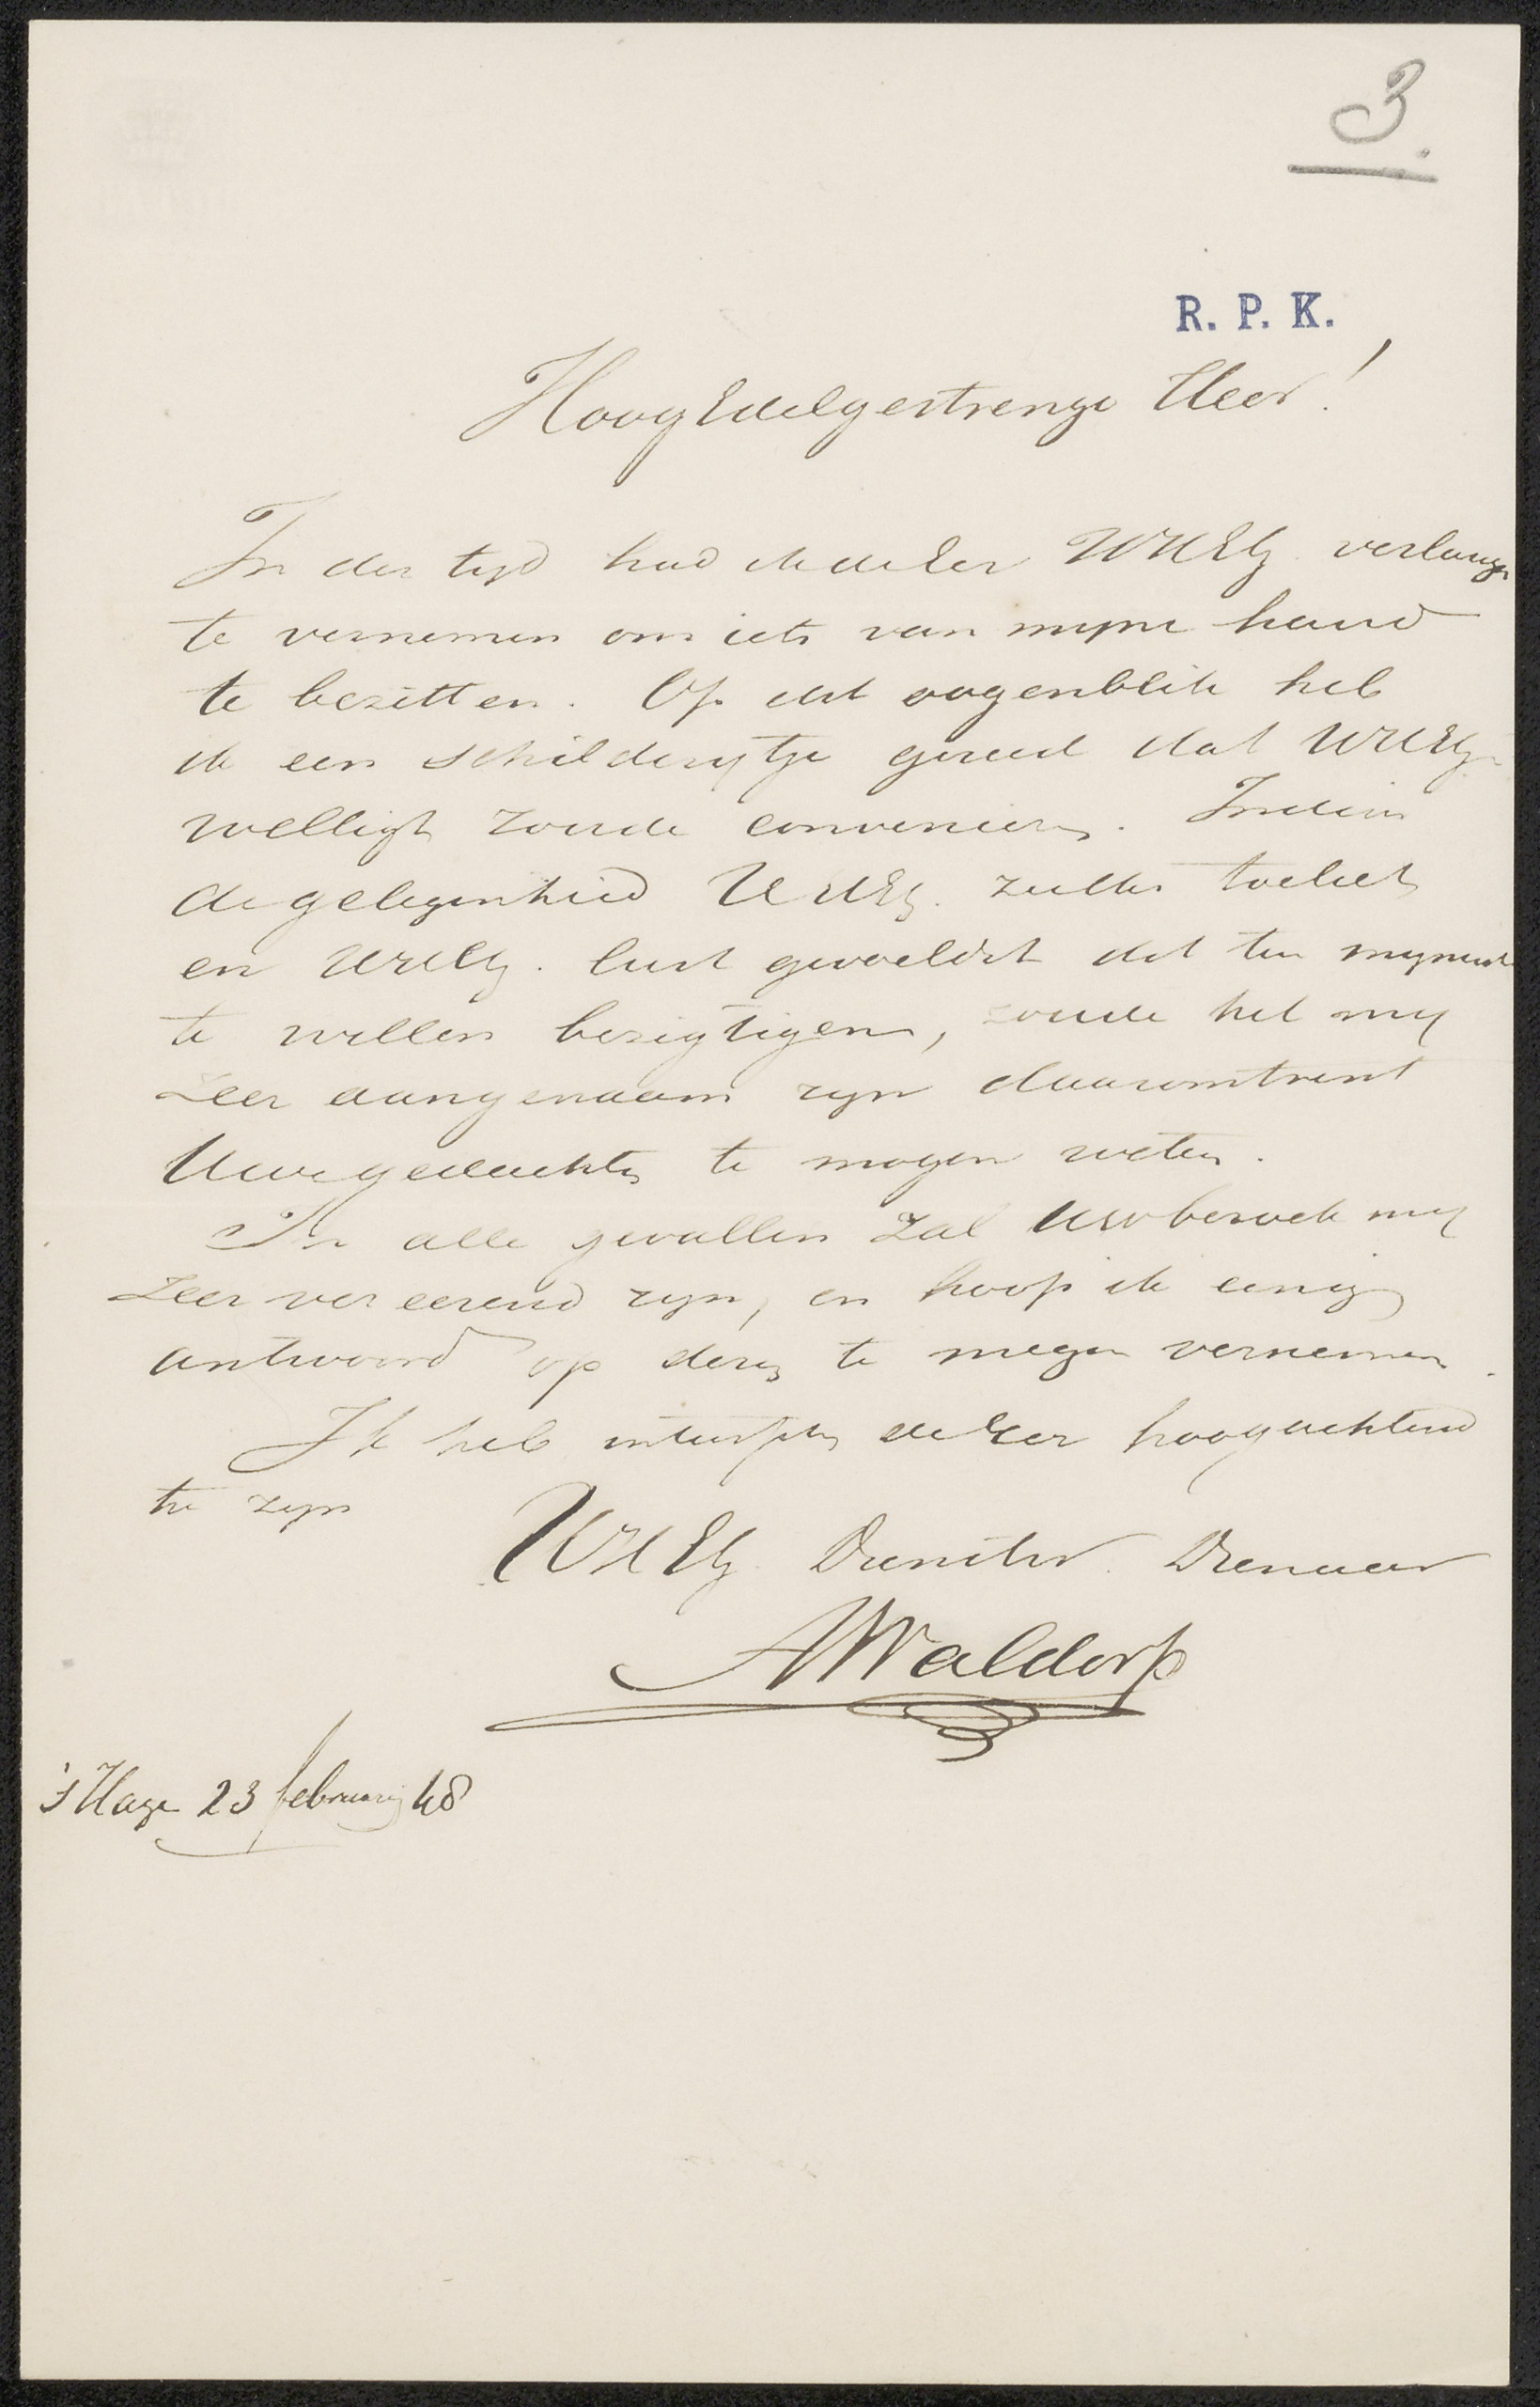 3.
R. P. K.
HoogEdelgestrenge Heer!
In der tyd had ik de Eer UWEG verlangen
te vernemen om iets van myne hand
te bezitten. Op dit oogenblik heb
ik een schilderytje gereed dat UWEG
welligt zoude convenieren. Indien
de gelegenheid UWEG. zulks toeliet
en UWEG. lust gevoeldet dit ten mynent
te willen bezigtigen, zoude het my
zeer aangenaam zyn daaromtrent
Uwe gedachten te mogen weten.
In alle gevallen zal Uw bezoek my
zeer vereerend zyn, en hoop ik eenig
antwoord op deze te mogen vernemen.
Ik heb de Eer hoogachtend
te zyn
UWEG Dienstw. Dienaar
AWaldorp
'sHage 23 february 48